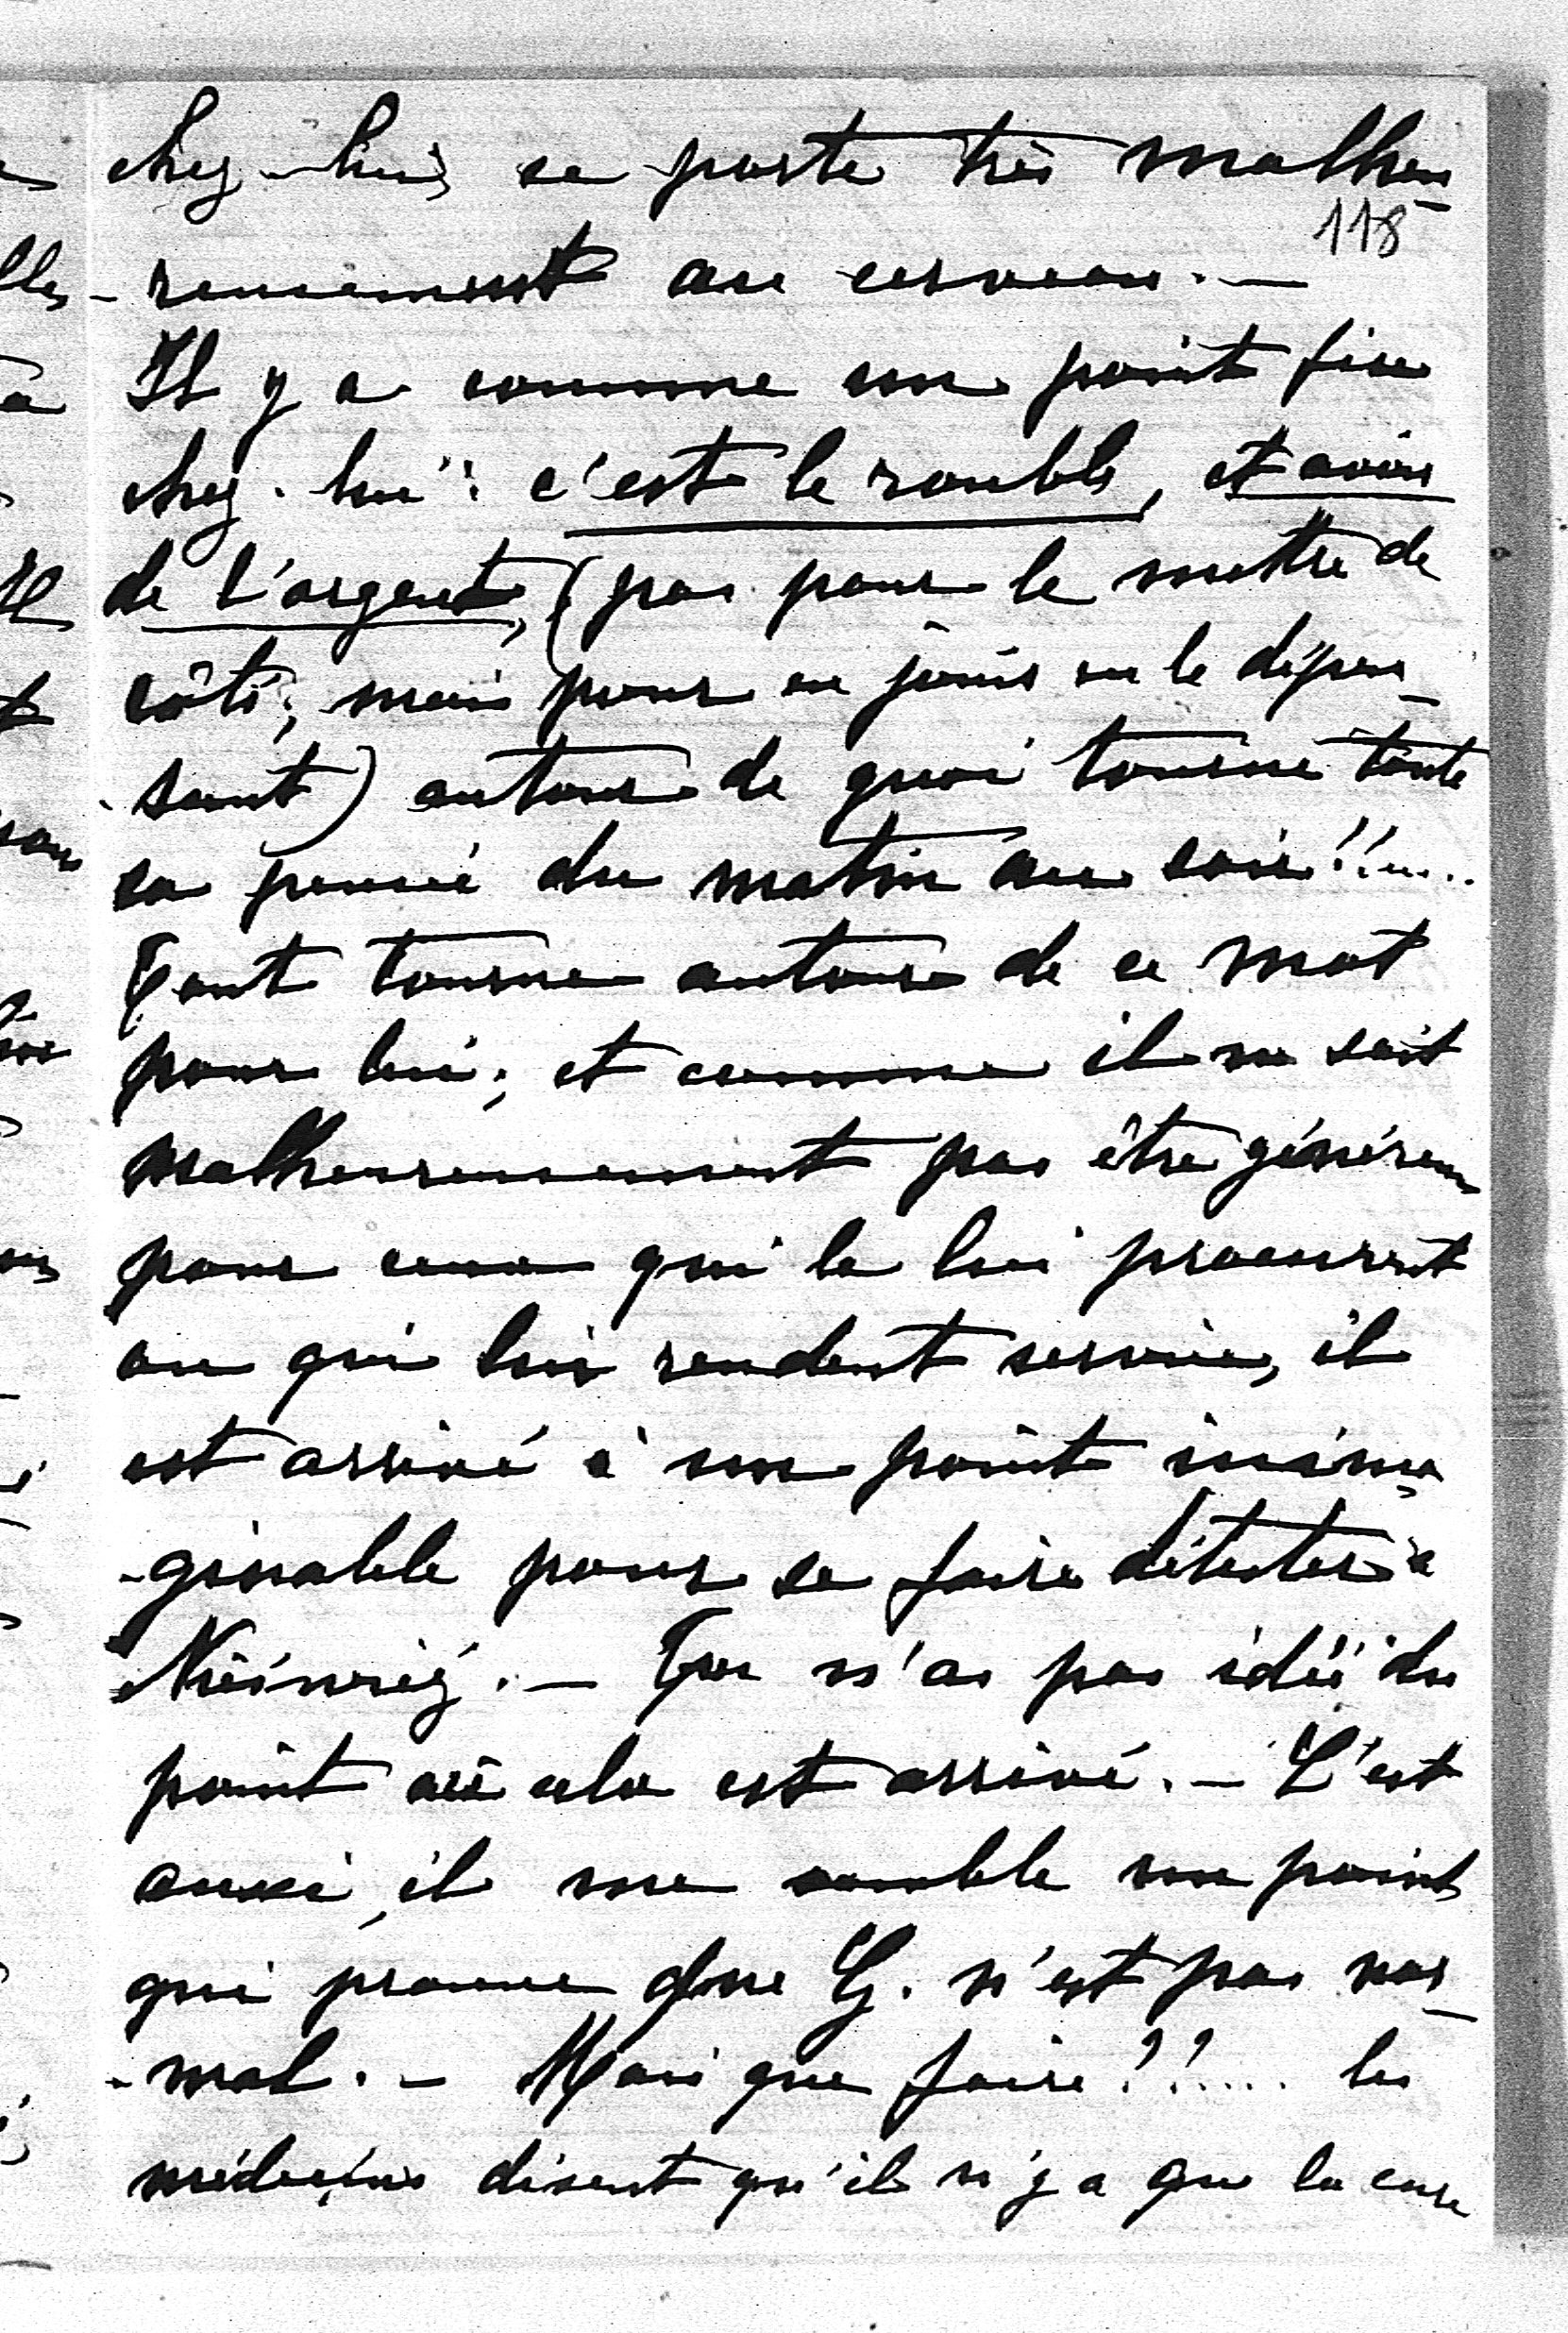 chez-lui, se porte très malheu-
118
-reusement au cerveau. —
Il y a comme un point fixe
chez-lui: c'est le rouble, et avoir
de l'argent, (pas pour le mettre de
côté; mais pour en jouir en le dépen-
-sant) autour de quoi tourne toute
sa pensée du matin au soir!!....
Tout tourne autour de ce mot
pour lui; et comme il ne sait
malheureusement pas être généreux
pour ceux qui le lui procurent
ou qui lui rendent service, il
est arrivé à un point inima-
-ginable pour se faire détester à
. — Tu n'as pas idée du
point où cela est arrivé. — C'est
aussi, il me semble un point
qui prouve que G. n'est pas nor-
-mal. — Mais que faire!!..... les
médecins disent qu'il n'y a que la cure